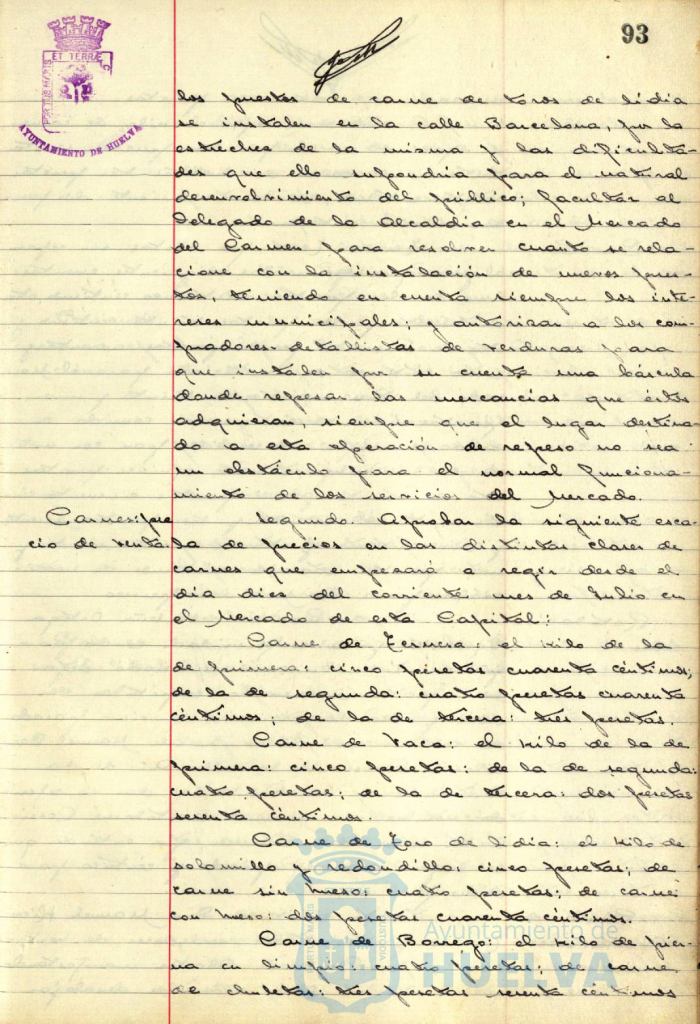 93
ET TERRAE C
PORTUS MARIS
AYUNTAMIENTO DE HUELVA
los puestos de carne de toros de lidia
se instalen en la calle Barcelona, por lo
estrecha de la misma y las dificulta-
des que ello supondria para el natural
desenvolvimiento del público; facultar al
Delegado de la Alcaldia en el Mercado
del Carmen para resolver cuanto se rela-
cione con la instalación de nuevos pues-
tos, teniendo en cuenta siempre los inte-
reses municipales; y autorizar a los com-
pradores-detallistas de verduras para
que instalen por su cuenta una báscula
donde repesar las mercancias que éstos
adquieran, siempre que el lugar destina-
do a esta operación de repeso no sea
un obstáculo para el normal funciona-
miento de los servicios del Mercado.
Carnes: pre
cio de venta.
Segundo. Aprobar la siguiente esca-
la de precios en las distintas clases de
carnes que empezará a regir desde el
dia diez del corriente mes de Julio en
el Mercado de esta Capital:
Carne de Ternera: el kilo de la
de primera: cinco pesetas cuarenta céntimos;
de la de segunda: cuatro pesetas cuarenta
céntimos; de la de tercera: tres pesetas.
Carne de Vaca: el kilo de la de
primera: cinco pesetas: de la de segunda:
cuatro pesetas; de la de tercera: dos pesetas
sesenta céntimos.
Carne de Toro de lidia: el kilo de
solomillo y redondillo: cinco pesetas; de
carne sin hueso: cuatro pesetas; de carne
con hueso: dos pesetas cuarenta céntimos.
Carne de Borrego: el kilo de pier-
na en limpio: cuatro pesetas; de carne
de chuletas: tres pesetas sesenta céntimos
Ayuntamiento de
HUELVA